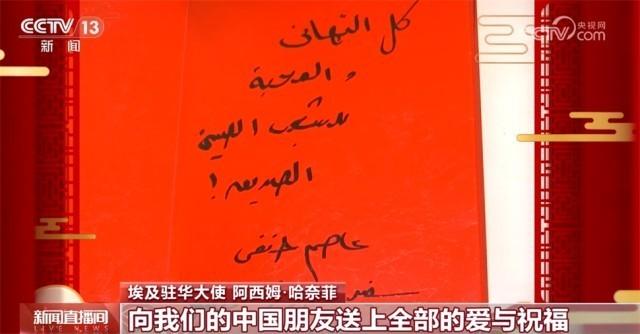 CCTV 13
新闻
央视网
CCTV.com
كل التهانى
والمحبة
للشعب الصينى
الصديق !
عاصم حنفى
埃及驻华大使 阿西姆·哈奈菲
新闻直播间
LIVE NEWS
向我们的中国朋友送上全部的爱与祝福